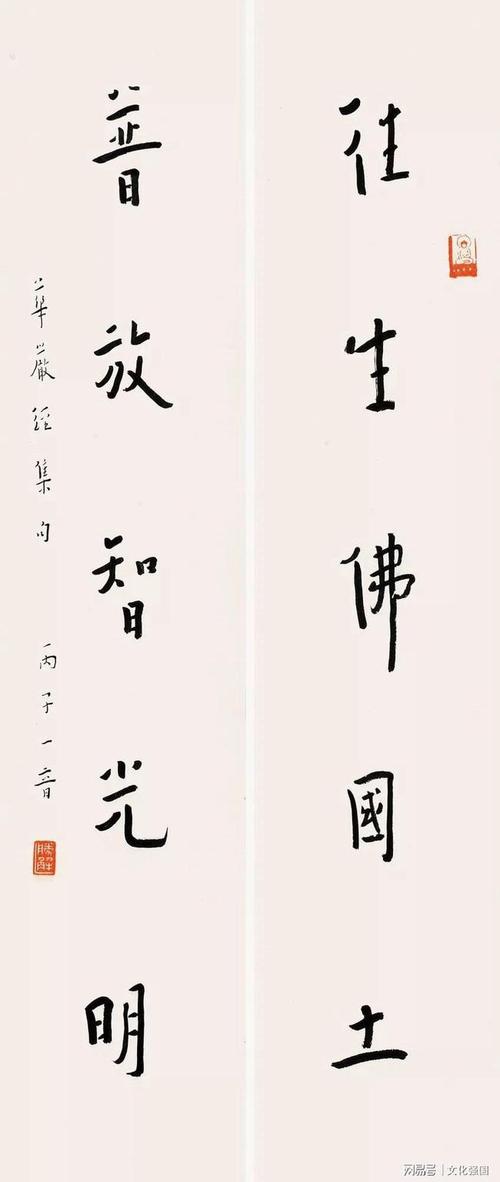 往生佛國土
普放智光明
華嚴經集句 丙子一音
勝解
网易号 | 文化强国